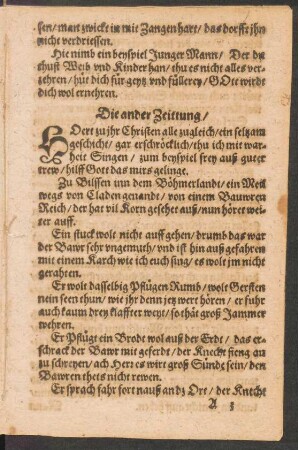 sen/ man zwickt in mit Zangen hart/ das dorfft jhn
nicht verdriessen.
Hie nimb ein beyspiel Junger Mann/ Der du
thust Weib vnd Kinder han/ thu es nicht alles ver-
zehren/ hüt dich für geytz vnd füllerey/ GOtt wirdt
dich wol ernehren.
Die ander Zeittung/
HOert zu jhr Christen alle zugleich/ ein seltzam
geschicht/ gar erschröcklich/ thu ich mit war-
heit Singen/ zum beyspiel frey auß guter
trew/ hilff Gott das mirs gelinge.
Zu Bilssen inn dem Böhmerlandt/ ein Meil
wegs von Claden genandt/ von einem Bauwren
Reich/ der hat vil Korn gesehet auß/ nun höret wei-
ter auff.
Ein stuck wolt nicht auff gehen/ drumb das war
der Bawr sehr vngemuth/ vnd ist hin auß gefahren
mit einem Karch wie ich euch sing/ es wolt jm nicht
gerahten.
Er wolt dasselbig Pflügen Rumb/ wolt Gersten
nein seen thun/ wie jhr denn jetz wert hören/ er fuhr
auch kaum drey klaffter weyt/ so thät groß Jammer
wehren.
Er Pflügt ein Brodt wol auß der Erdt/ das er-
schrack der Bawr mit geferdt/ der Knecht fieng an
zu schreyen/ ach Herr es wirt groß Sünde sein/ den
Bawren thets nicht rewen.
Er sprach fahr fort nauß an dz Ort/ der Knecht
A